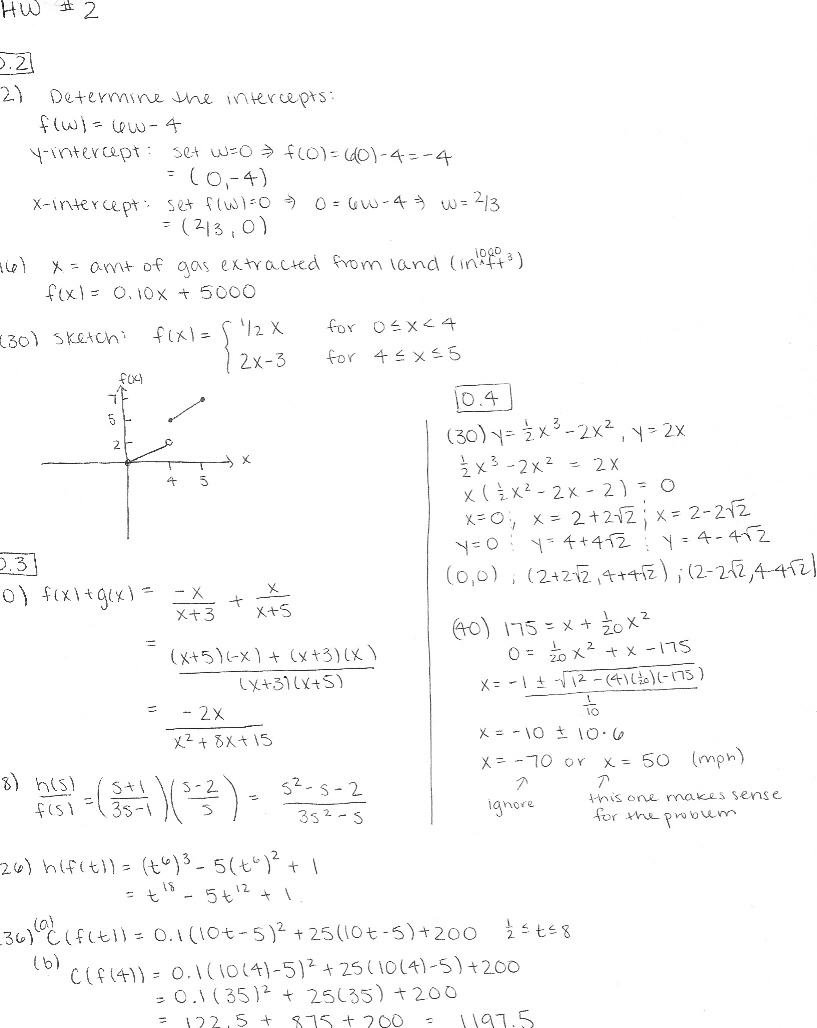 HW #2
0.2
2) Determine the intercepts:
f(w) = 6w - 4
y-intercept: set w=0 ⇒ f(0) = 6(0)-4 = -4
= (0,-4)
x-intercept: set f(w)=0 ⇒ 0 = 6w-4 ⇒ w = 2/3
= (2/3, 0)
16) x = amt of gas extracted from land (in 1000 ft³)
f(x) = 0.10x + 5000
(30) sketch: f(x) = { 1/2 x for 0 ≤ x < 4
2x-3 for 4 ≤ x ≤ 5
f(x)
7
5
2
4 5 x
0.3
0) f(x)+g(x) = -x/(x+3) + x/(x+5)
= ((x+5)(-x) + (x+3)(x))/((x+3)(x+5))
= -2x/(x²+8x+15)
8) h(s)/f(s) = ((s+1)/(3s-1))((s-2)/s) = (s²-s-2)/(3s²-s)
26) h(f(t)) = (t⁶)³ - 5(t⁶)² + 1
= t¹⁸ - 5t¹² + 1
36) (a) C(f(t)) = 0.1(10t-5)² + 25(10t-5)+200 1/2 ≤ t ≤ 8
(b) C(f(4)) = 0.1(10(4)-5)² + 25(10(4)-5)+200
= 0.1(35)² + 25(35) + 200
= 122.5 + 875 + 200 = 1197.5
0.4
(30) y = 1/2 x³ - 2x², y = 2x
1/2 x³ - 2x² = 2x
x(1/2 x² - 2x - 2) = 0
x=0; x = 2+2√2; x = 2-2√2
y=0 : y = 4+4√2 : y = 4-4√2
(0,0) ; (2+2√2, 4+4√2) ; (2-2√2, 4-4√2)
(40) 175 = x + 1/20 x²
0 = 1/20 x² + x - 175
x = (-1 ± √(1² - (4)(1/20)(-175)))/(1/10)
x = -10 ± 10·6
x = -70 or x = 50 (mph)
↑ ↑
ignore this one makes sense
for the problem